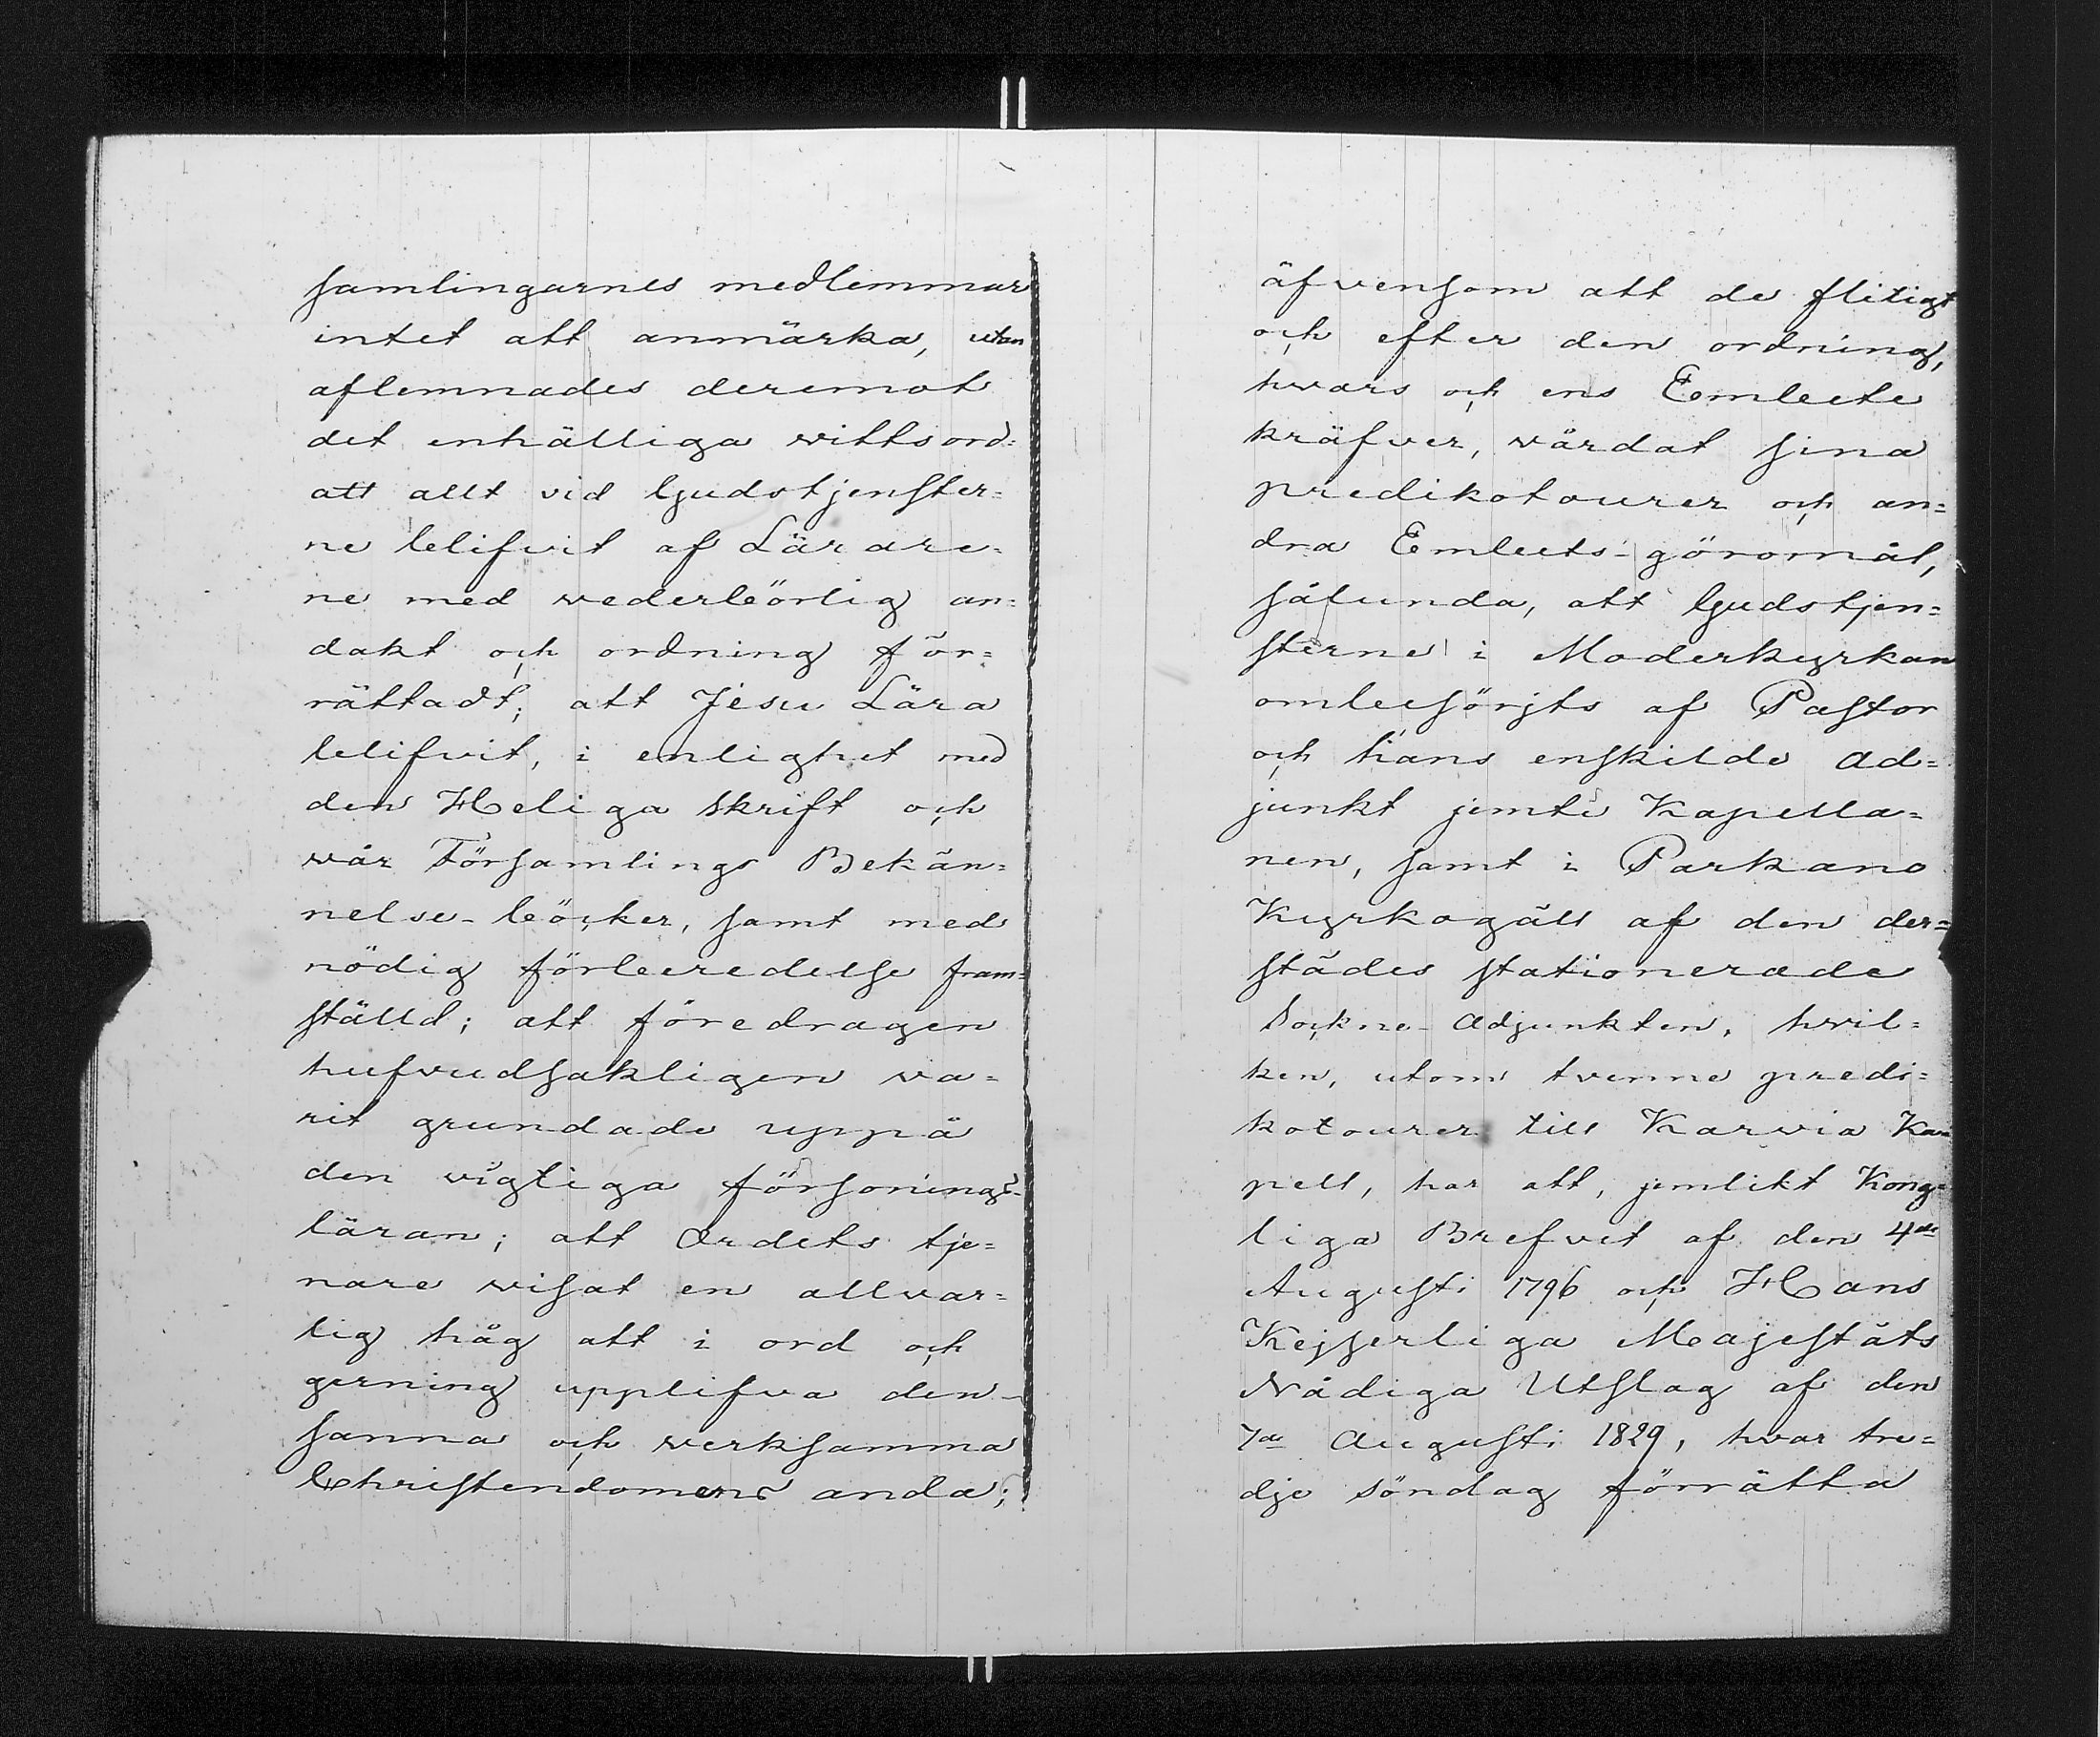 samlingarnes medlemmar
intet att anmärka, utan
aflemnades deremot
det enhälliga wittsord:
att allt vid Gudstjenster=
ne blifvit af Lärare=
ne med wederbörlig an=
dakt och ordning för=
rättadt; att Jesu Lära
blifvit, i enlighet med
den Heliga skrift och
wår Församlings Bekän=
nelse-böcker, samt med
nödig förberedelse fram=
ställd; att föredragen
hufvudsakligen va=
rit grundade uppå
den vigtiga försonings-
läran; att Ordets tje=
nare wisat en allvar=
lig håg att i ord och
gerning upplifva den
sanna och werksamma
Christendomens anda;
äfvensom att de flitigt
och efter den ordning,
hwars och ens Embete
kräfver, wårdat sina
predikotourer och an=
dra Embets-göromål,
sålunda, att Gudstjen=
sterne i Moderkyrkan
ombesörjts af Pastor
och hans enskilde Ad=
junkt jemte Kapella=
nen, samt i Parkano
Kyrkogäll af den der=
städes stationerade
Sockne-Adjunkten, hwil=
ken, utom tvenne predi=
kotourer till Karvia Ka=
pell, har att, jemlikt Kong=
liga Brefvet af den 4de
Augusti 1796 och Hans
Kejserliga Majestäts
Nådiga Utslag af den
7de Augusti 1829, hvar tre=
dje söndag förrätta